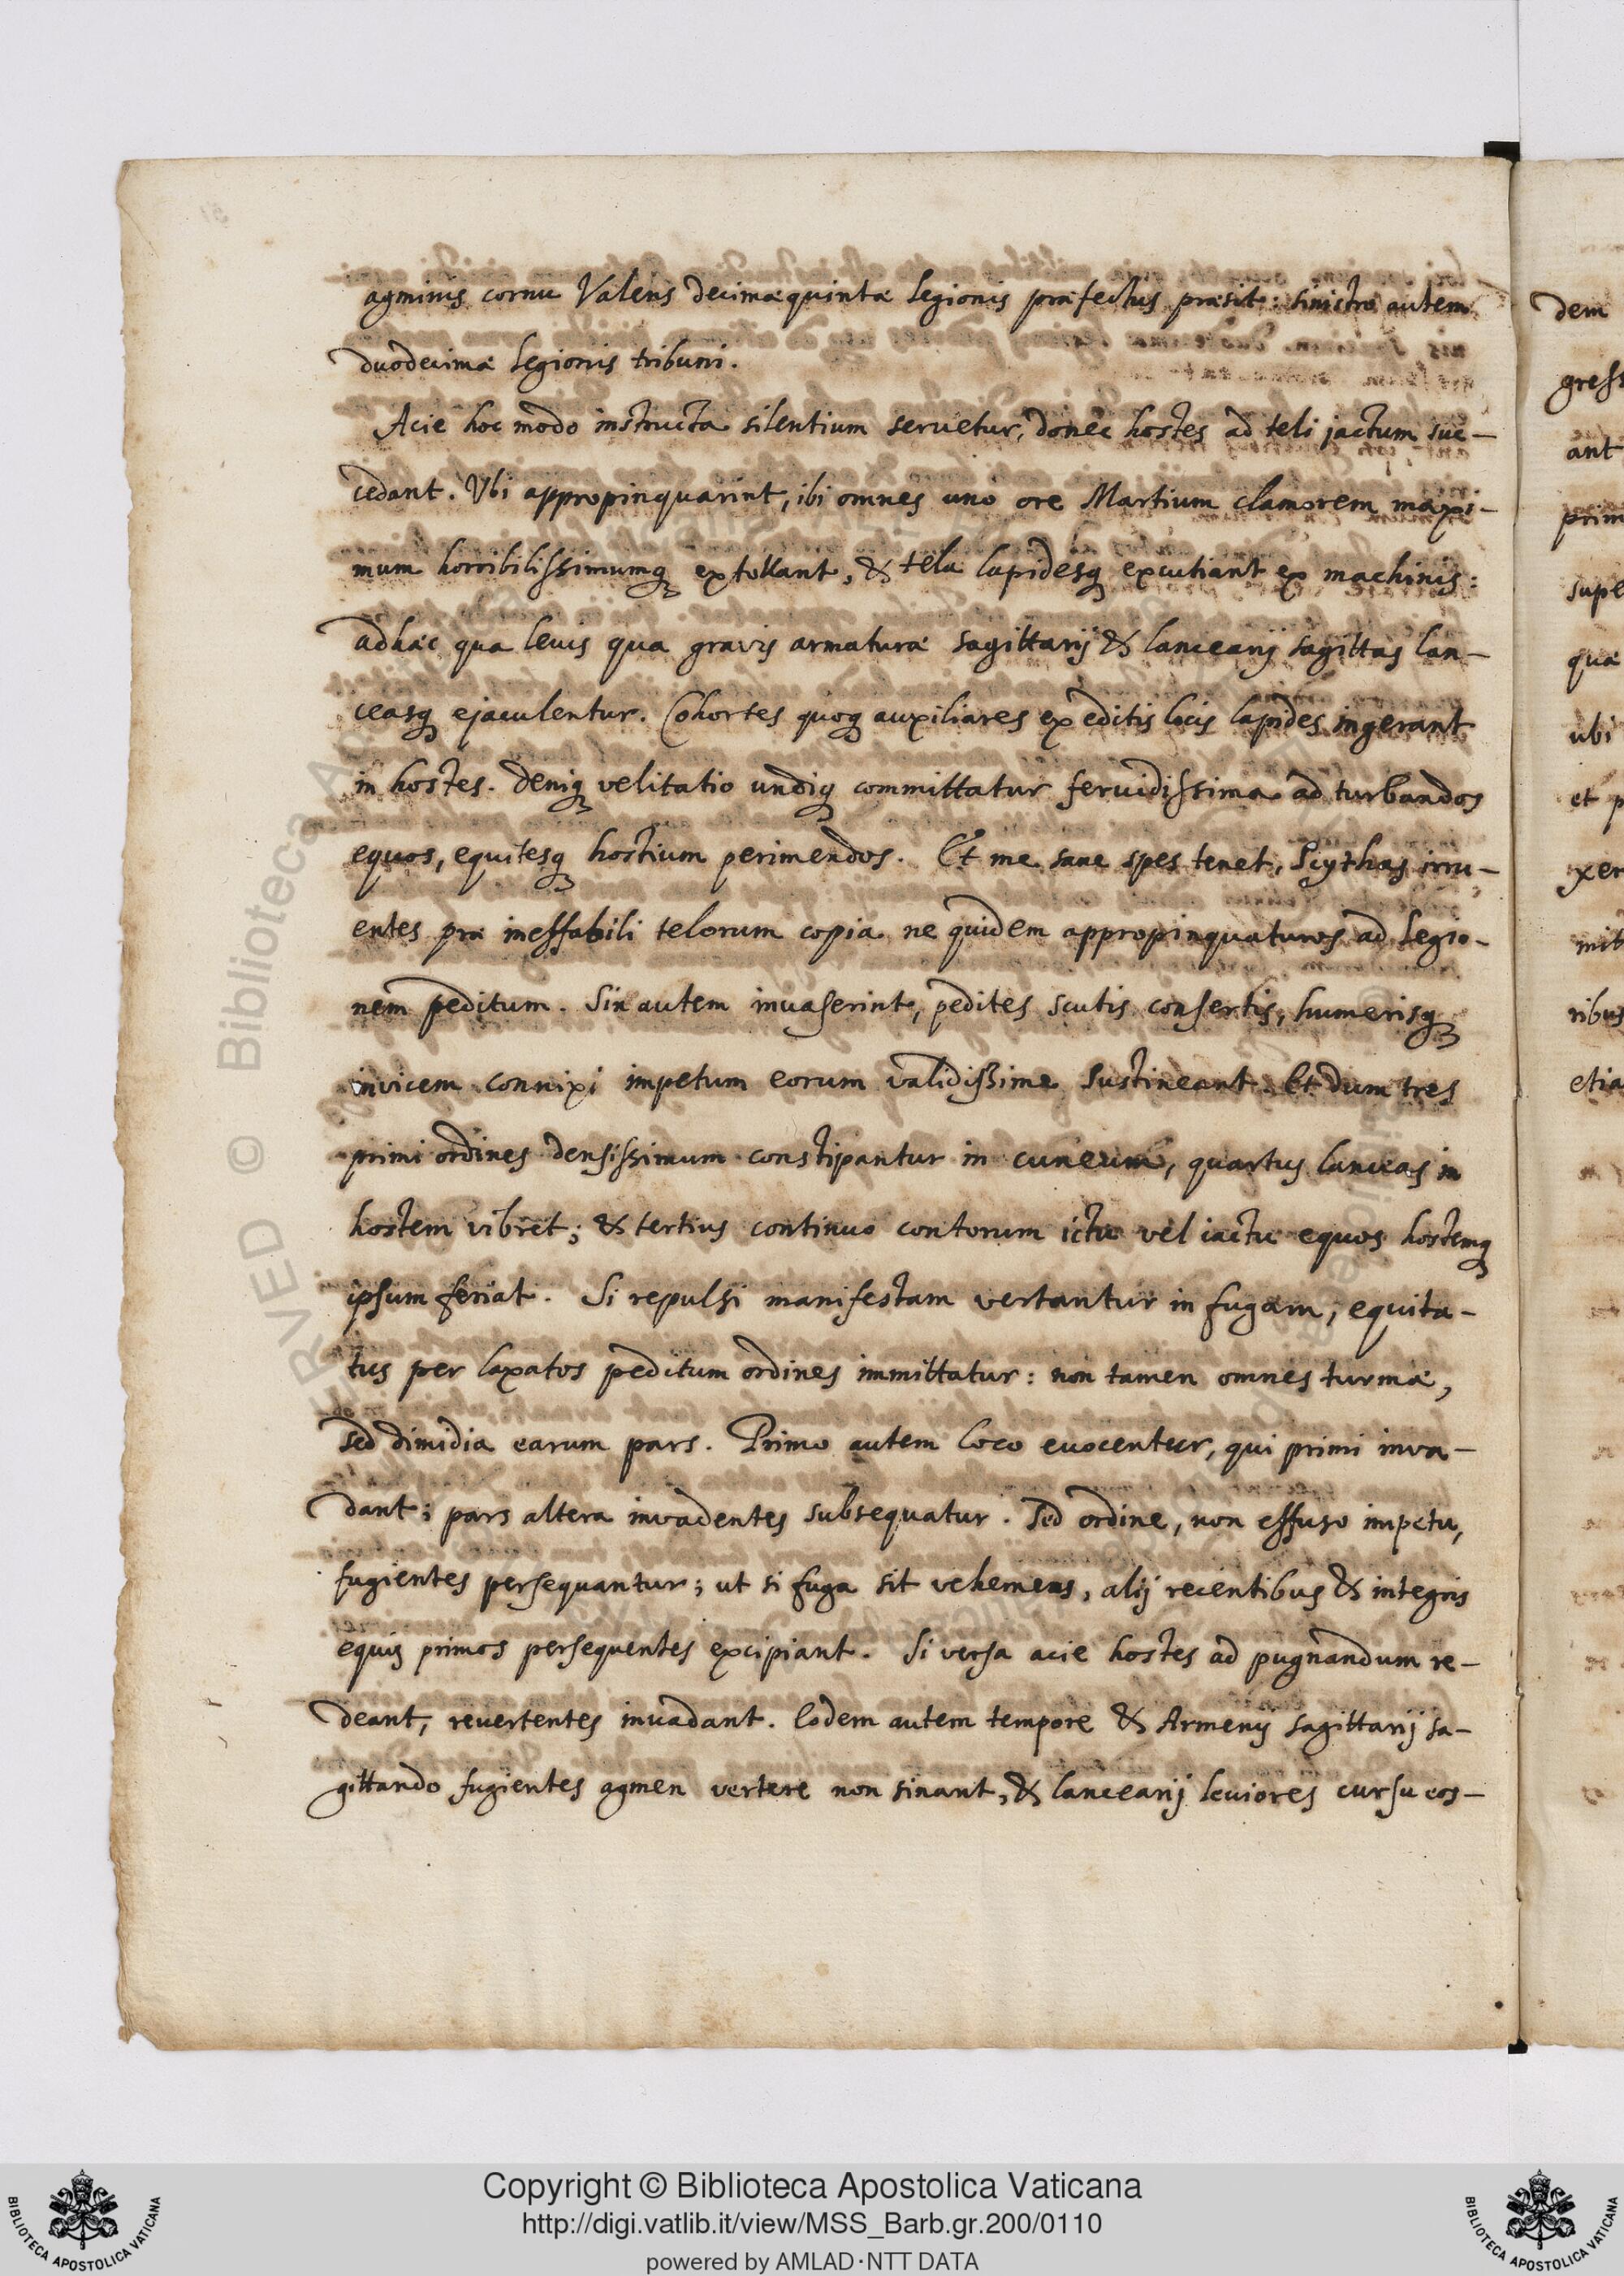 agminis cornu Valens decimæquintæ legionis præfectus præsit: sinistro autem
duodecimæ legionis tribuni.
Acie hoc modo instructa silentium seruetur, donec hostes ad teli jactum suc-
cedant. Vbi appropinquarint, ibi omnes uno ore Martium clamorem maxi-
mum horribilissimumq; extollant, & tela lapidesq; excutiant ex machinis:
adhæc qua leuis qua gravis armaturæ sagittarij & lancearij sagittas lan-
ceasq; ejaculentur. Cohortes quoq; auxiliares ex editis locis lapides ingerant
in hostes. Deniq; velitatio undiq; committatur feruidissima ad turbandos
equos, equitesq; hostium perimendos. Et me sane spes tenet, Scythas irru-
entes præ ineffabili telorum copia ne quidem appropinquaturos ad legio-
nem peditum. Sin autem invaserint, pedites scutis consertis, humerisq;
invicem connixi impetum eorum validissime sustineant. Et dum tres
primi ordines densissimum constipantur in cuneum, quartus lanceas in
hostem vibret; & tertius continuo contorum ictu vel iactu equos hostemq;
ipsum feriat. Si repulsi manifestam vertantur in fugam, equita-
tus per laxatos peditum ordines immittatur: non tamen omnes turmæ,
sed dimidia earum pars. Primo autem loco euocentur, qui primi inva-
dant; pars altera invadentes subsequatur. Sed ordine, non effuso impetu,
fugientes persequantur; ut si fuga sit vehemens, alij recentibus & integris
equis primos persequentes excipiant. Si versa acie hostes ad pugnandum re-
deant, reuertentes invadant. Eodem autem tempore & Armenij sagittarij sa-
gittando fugientes agmen vertere non sinant, & lancearij leuiores cursu eos-
dem
gress
ant
prim
supe
qua
ubi
et p
xer
mit
ribus
etia
Copyright © Biblioteca Apostolica Vaticana
http://digi.vatlib.it/view/MSS_Barb.gr.200/0110
powered by AMLAD·NTT DATA
BIBLIOTECA APOSTOLICA VATICANA
BIBLIOTECA APOSTOLICA VATICANA